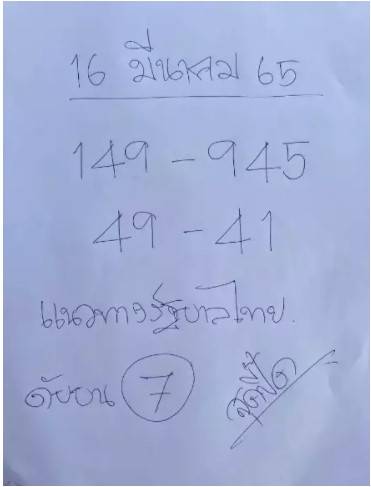 16 มีนาคม 65
149 - 945
49 - 41
แนวทางรัฐบาลไทย.
7